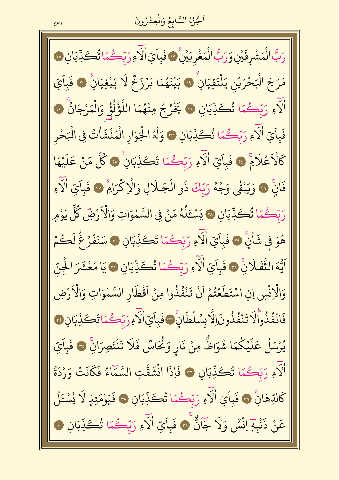 اَلْجُزْءُ السَّابِعُ وَالْعِشْرُونَ
رَبُّ الْمَشْرِقَيْنِ وَرَبُّ الْمَغْرِبَيْنِۚ ﴿١٧﴾ فَبِاَيِّ اٰلَٓاءِ رَبِّكُمَا تُكَذِّبَانِ ﴿١٨﴾
مَرَجَ الْبَحْرَيْنِ يَلْتَقِيَانِۙ ﴿١٩﴾ بَيْنَهُمَا بَرْزَخٌ لَا يَبْغِيَانِۚ ﴿٢٠﴾ فَبِاَيِّ
اٰلَٓاءِ رَبِّكُمَا تُكَذِّبَانِ ﴿٢١﴾ يَخْرُجُ مِنْهُمَا اللُّؤْلُؤُ۬ وَالْمَرْجَانُۚ ﴿٢٢﴾
فَبِاَيِّ اٰلَٓاءِ رَبِّكُمَا تُكَذِّبَانِ ﴿٢٣﴾ وَلَهُ الْجَوَارِ الْمُنْشَاٰتُ فِي الْبَحْرِ
كَالْاَعْلَامِۚ ﴿٢٤﴾ فَبِاَيِّ اٰلَٓاءِ رَبِّكُمَا تُكَذِّبَانِ۟ ﴿٢٥﴾ كُلُّ مَنْ عَلَيْهَا
فَانٍۚ ﴿٢٦﴾ وَيَبْقٰى وَجْهُ رَبِّكَ ذُو الْجَلَالِ وَالْاِكْرَامِۚ ﴿٢٧﴾ فَبِاَيِّ اٰلَٓاءِ
رَبِّكُمَا تُكَذِّبَانِ ﴿٢٨﴾ يَسْـَٔلُهُ مَنْ فِي السَّمٰوَاتِ وَالْاَرْضِۜ كُلَّ يَوْمٍ
هُوَ فِي شَأْنٍۚ ﴿٢٩﴾ فَبِاَيِّ اٰلَٓاءِ رَبِّكُمَا تُكَذِّبَانِ ﴿٣٠﴾ سَنَفْرُغُ لَكُمْ
اَيُّهَ الثَّقَلَانِۚ ﴿٣١﴾ فَبِاَيِّ اٰلَٓاءِ رَبِّكُمَا تُكَذِّبَانِ ﴿٣٢﴾ يَا مَعْشَرَ الْجِنِّ
وَالْاِنْسِ اِنِ اسْتَطَعْتُمْ اَنْ تَنْفُذُوا مِنْ اَقْطَارِ السَّمٰوَاتِ وَالْاَرْضِ
فَانْفُذُواۜ لَا تَنْفُذُونَ اِلَّا بِسُلْطَانٍۚ ﴿٣٣﴾ فَبِاَيِّ اٰلَٓاءِ رَبِّكُمَا تُكَذِّبَانِ ﴿٣٤﴾
يُرْسَلُ عَلَيْكُمَا شُوَاظٌ مِنْ نَارٍ وَنُحَاسٌ فَلَا تَنْتَصِرَانِۚ ﴿٣٥﴾ فَبِاَيِّ
اٰلَٓاءِ رَبِّكُمَا تُكَذِّبَانِ ﴿٣٦﴾ فَاِذَا انْشَقَّتِ السَّمَٓاءُ فَكَانَتْ وَرْدَةً
كَالدِّهَانِۚ ﴿٣٧﴾ فَبِاَيِّ اٰلَٓاءِ رَبِّكُمَا تُكَذِّبَانِ ﴿٣٨﴾ فَيَوْمَئِذٍ لَا يُسْـَٔلُ
عَنْ ذَنْبِهِٓ اِنْسٌ وَلَا جَٓانٌّۚ ﴿٣٩﴾ فَبِاَيِّ اٰلَٓاءِ رَبِّكُمَا تُكَذِّبَانِ ﴿٤٠﴾